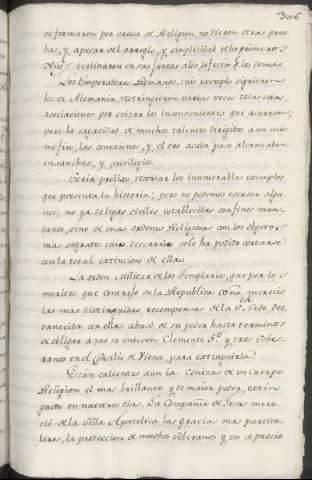 306
se formaron por causa de Religion, no dieron otras prue-
bas, y, apesar del arreglo, y simplicidad de los primeros
declinaron en sus juntas a los defectos q. los demas.
Los Emperadores Romanos, cuio exemplo siguieron
los de Alemania, restringieron varias veces todas estas
asociaciones por evitar los inconvenientes que acarrean;
pero la sagacidad de muchos talentos dirigidos a un mis-
mo fin, las conexiones, y el oro a cada paso alcanzaban
ensanches, y privilegios.
Seria prolixo recoxer los inumerables exemplos
que presenta la historia; pero no podemos escusar algu-
nos; no ya de ligas civiles establecidas con fines mun-
danos, sino de unas ordenes Religiosas con los objetos
mas sagrados cuia Decadencia solo ha podido cortarse
con la total extincion de ellas.
La orden Militar de los Templarios, que por los
meritos que contrajo en la Republica mereció
las mas distinguidas recompensas de la S. Sede, des-
vanecida con ellas abusó de su poder hasta terminos
de obligar a que se uniesen Clemente 5.º y tres Sobe-
ranos en el Concilio de Viena, para extinguirla.
Están calientes aun las Cenizas de un cuerpo
Religioso el mas brillante y de maior poder, extin-
guido en nuestros dias. La Compañia de Jesus mere-
ció de la Silla Apostolica las gracias mas particu-
lares, la proteccion de muchos Soberanos y un aprecio